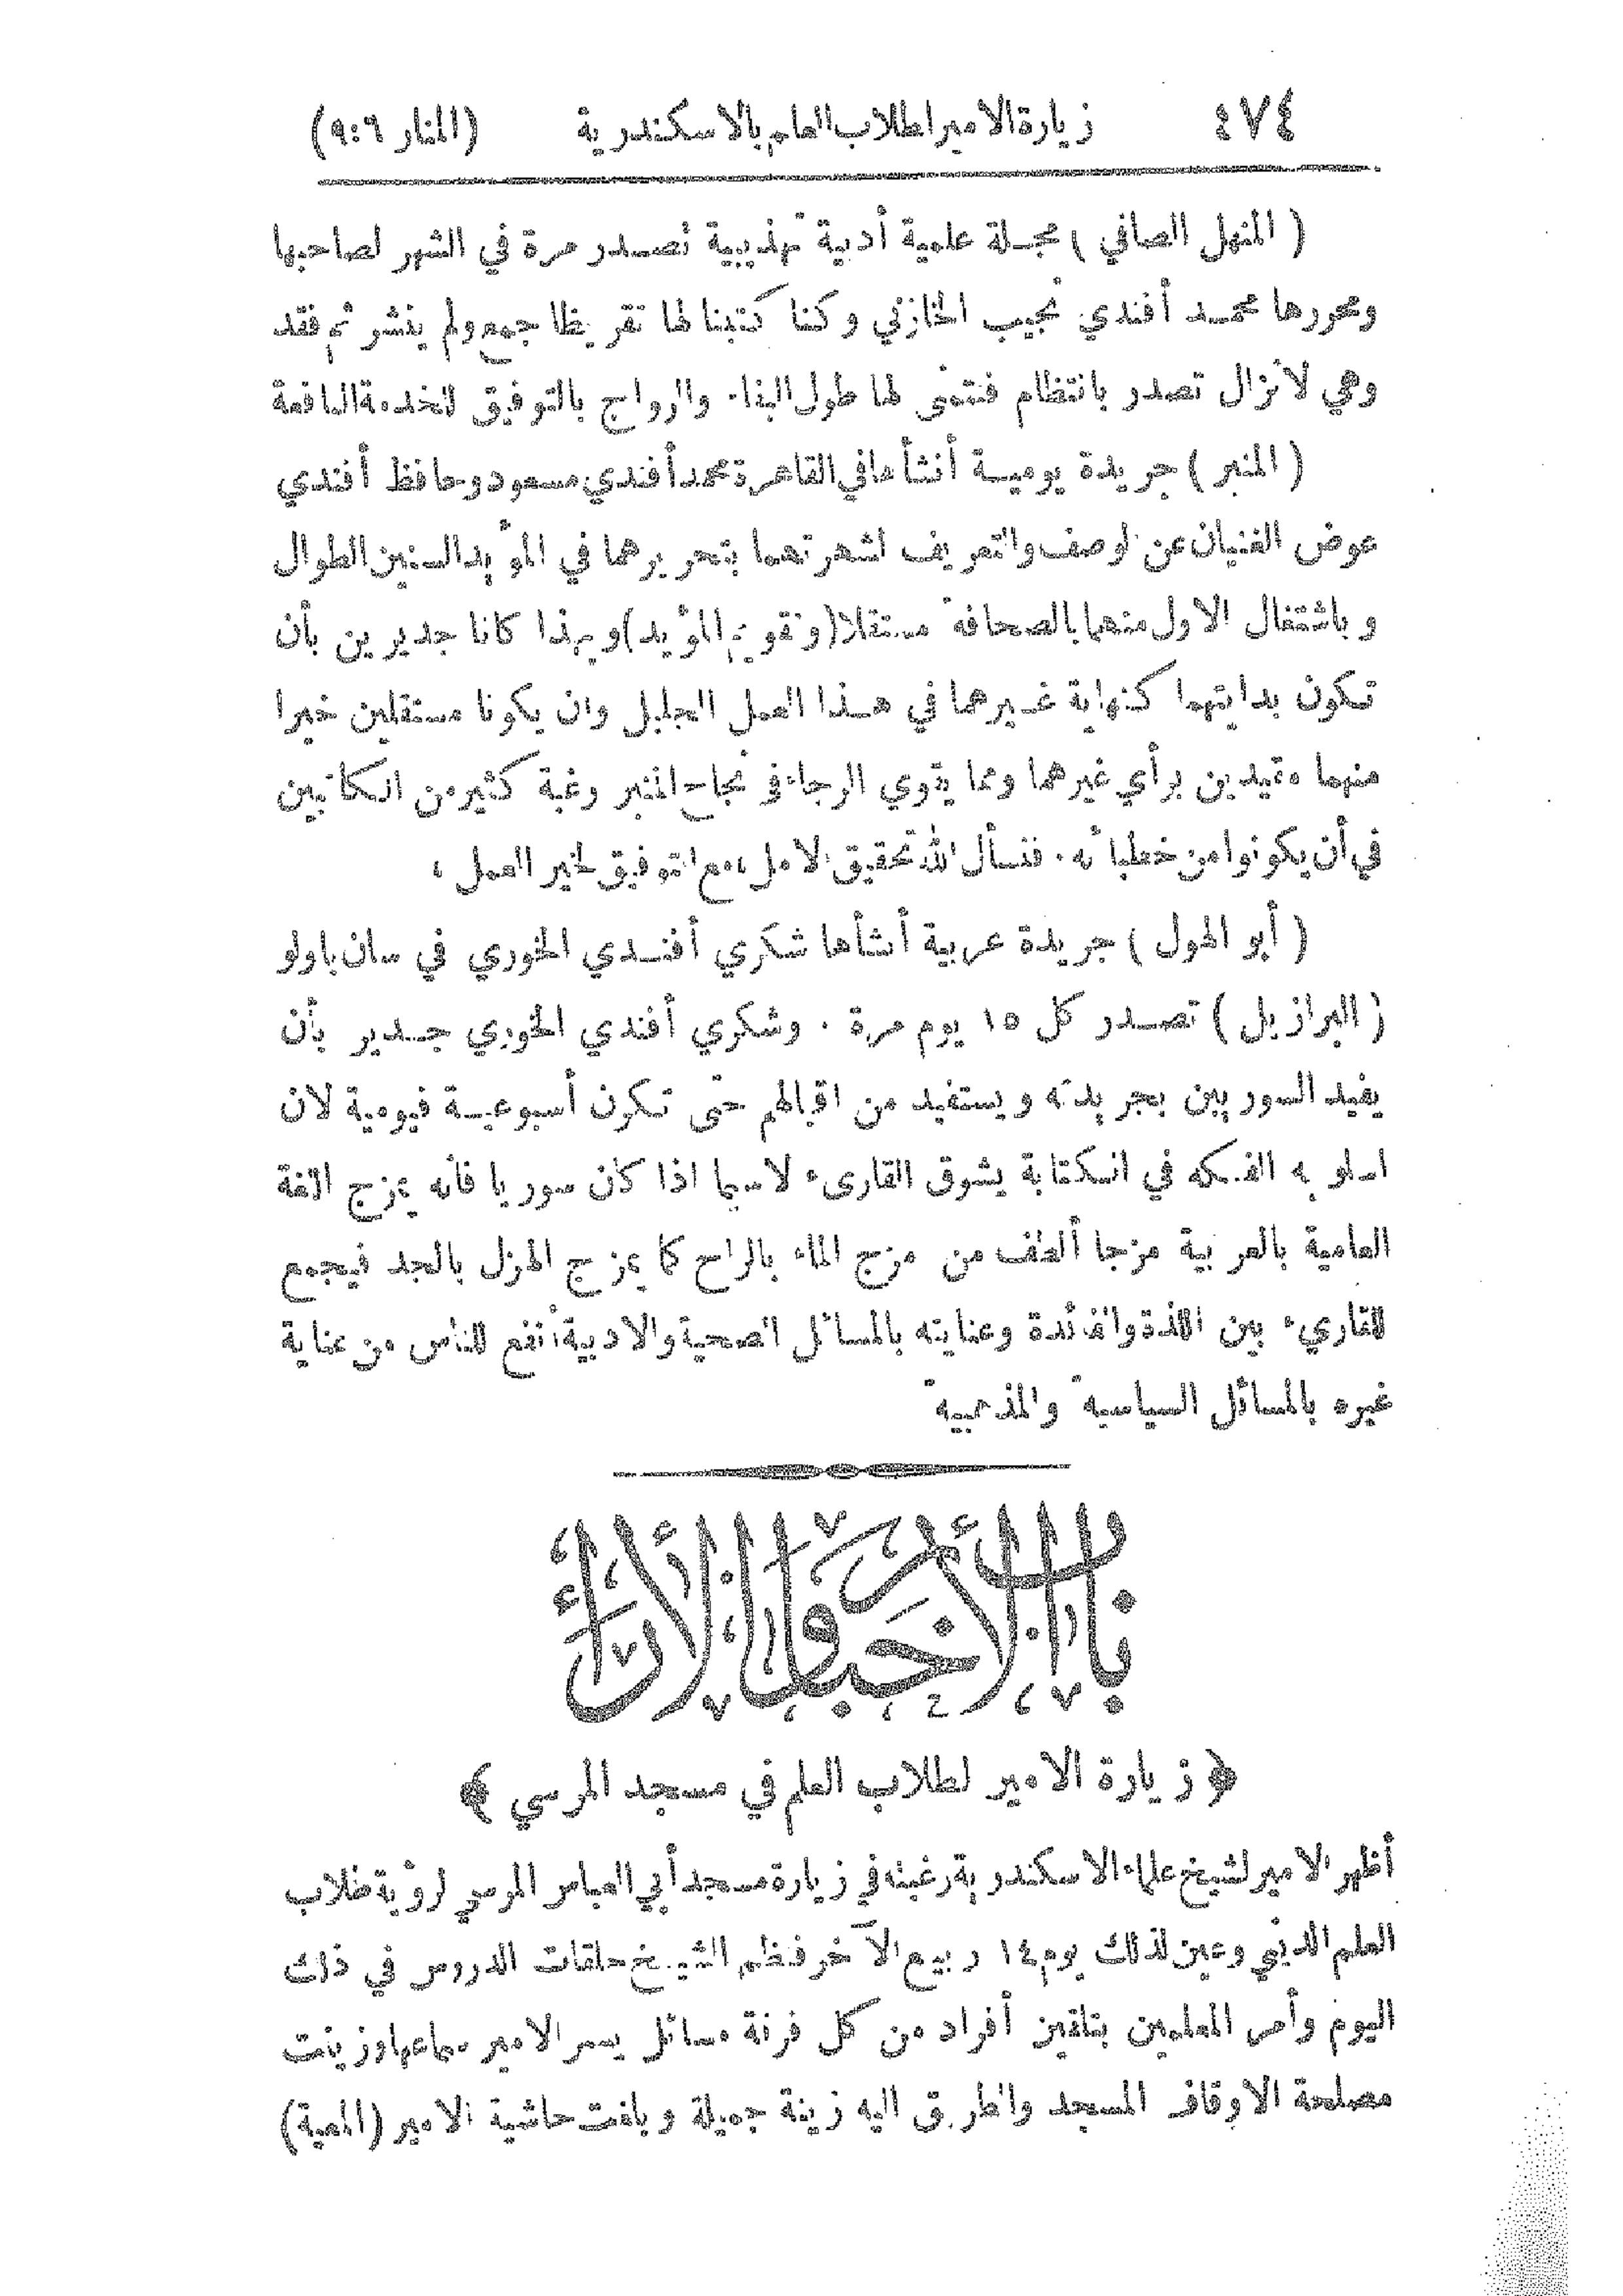 ٤٧٤ زيارة الامير لطلاب العلم بالاسكندرية (المنار ٦:٩)
( المنهل الصافي ) مجلة علمية أدبية تهذيبية تصدر مرة في الشهر لصاحبها
ومحررها محمد أفندي نجيب الخازني وكنا كتبنا لها تقريظا جمع ولم ينشر ثم فقد
وهي لا تزال تصدر بانتظام فنتمنى لها طول البقاء والرواج بالتوفيق للخدمة النافعة
( المنبر ) جريدة يومية أنشأها في القاهرة محمد أفندي مسعود وحافظ أفندي
عوض الغنيان عن الوصف والتعريف لشهرتهما بتحريرهما في المؤيد السنين الطوال
وباشتغال الاول منهما بالصحافة مستقلا (وتقويم المؤيد) وبهذا كانا جديرين بأن
تكون بدايتهما كنهاية غيرهما في هذا العمل الجليل وان يكونا مستقلين خيرا
منهما مقيدين برأي غيرهما ومما يقوي الرجاء في نجاح المنبر رغبة كثير من الكاتبين
في أن يكونوا من خطبائه . فنسأل الله تحقيق الامل ، مع التوفيق لخير العمل ،
( أبو الهول ) جريدة عربية أنشأها شكري أفندي الخوري في سان باولو
( البرازيل ) تصدر كل ١٥ يوم مرة . وشكري أفندي الخوري جدير بأن
يفيد السوريين بجريدته ويستفيد من اقبالهم حتى تكون أسبوعية فيومية لان
اسلوبه الفكه في الكتابة يشوق القارىء لا سيما اذا كان سوريا فانه يمزج اللغة
العامية بالعربية مزجا ألطف من مزج الماء بالراح كما يمزج الهزل بالجد فيجمع
للقاريء بين اللذة والفائدة وعنايته بالمسائل الصحية والادبية أنفع للناس من عناية
غيره بالمسائل السياسية والمذهبية
باب الأخبار والآراء
﴿ زيارة الامير لطلاب العلم في مسجد المرسي ﴾
أظهر الامير لشيخ علماء الاسكندرية رغبته في زيارة مسجد أبي العباس المرسي لرؤية طلاب
العلم الديني وعين لذلك يوم ١٤ ربيع الآخر فنظم الشيخ حلقات الدروس في ذلك
اليوم وأمر المعلمين بتلقين أفراد من كل فرقة مسائل يسر الامير سماعها وزينت
مصلحة الاوقاف المسجد والطريق اليه زينة جميلة وبلغت حاشية الامير (المعية)